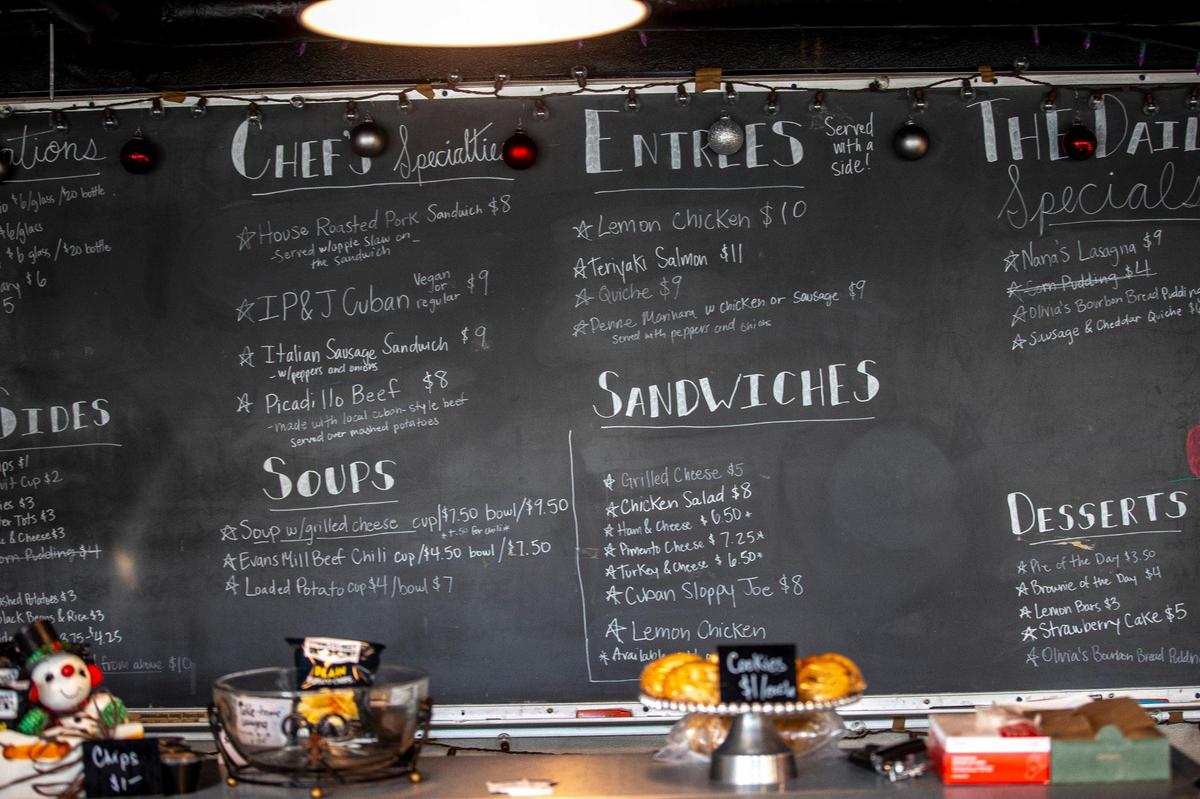 ations
$6/glass /$20 bottle
$6/glass
$6 glass /$20 bottle
ary $6
5
IDES
ps $1
uit Cup $2
ies $3
ter Tots $3
& Cheese $3
orn Pudding $4
ashed Potatoes $3
Black Beans & Rice $3
.75-$4.25
from above $10
CHEF'S Specialties
House Roasted Pork Sandwich $8
-Served w/apple slaw on
the sandwich
IP&J Cuban Vegan or regular $9
Italian Sausage Sandwich $9
- w/peppers and onions
Picadillo Beef $8
-made with local cuban-style beef
served over mashed potatoes
SOUPS
Soup w/grilled cheese cup/$7.50 bowl/$9.50
Evans Mill Beef Chili cup/$4.50 bowl/$7.50
Loaded Potato cup $4/bowl $7
ENTREES
Served
with a
side!
Lemon Chicken $10
Teriyaki Salmon $11
Quiche $9
Penne Marinara w chicken or sausage $9
served with peppers and onions
SANDWICHES
Grilled Cheese $5
Chicken Salad $8
Ham & Cheese $6.50*
Pimento Cheese $7.25*
Turkey & Cheese $6.50*
Cuban Sloppy Joe $8
Lemon Chicken
*Available
THE DAIL
Specials
Nana's Lasagna $9
Corn Pudding $4
Olivia's Bourbon Bread Pudding
Sausage & Cheddar Quiche
DESSERTS
Pie of the Day $3.50
Brownie of the Day $4
Lemon Bars $3
Strawberry Cake $5
Olivia's Bourbon Bread Puddin
Chips
$1-
PLAIN
Cookies
$1/each